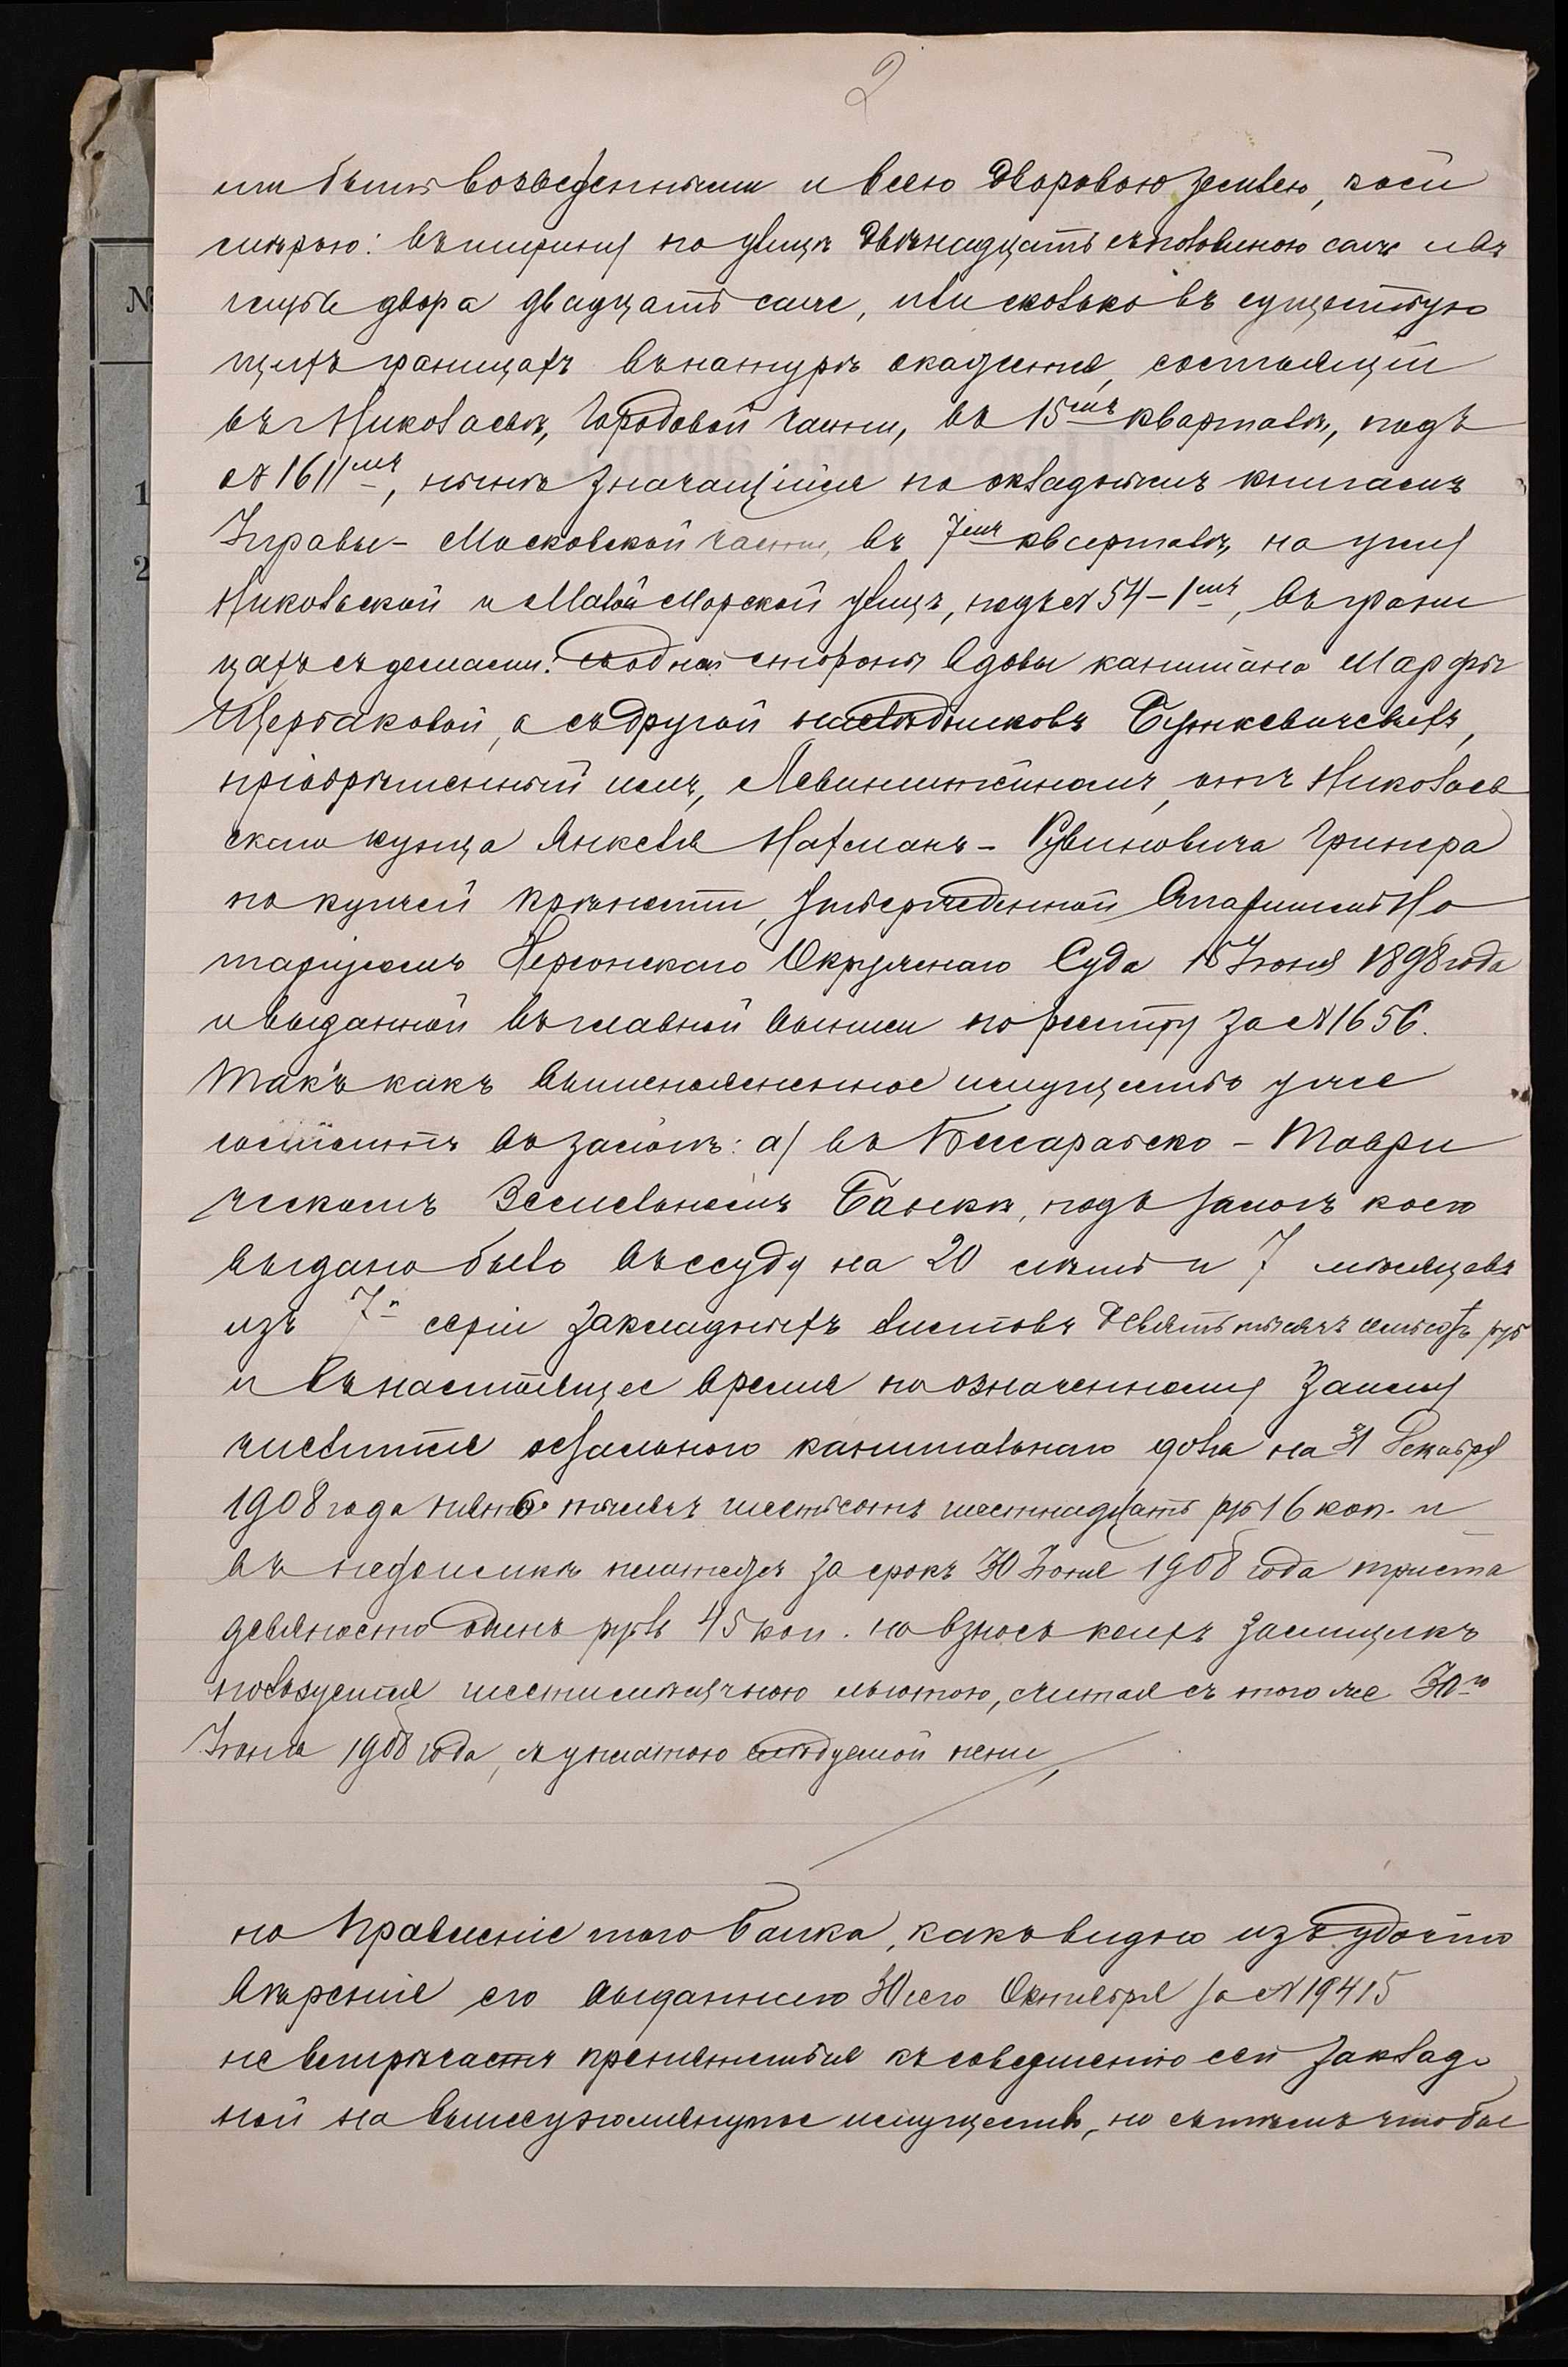 2
ти быть возведенными и всею дворовою землею, коей
мѣрою: въ ширину по улицѣ двѣнадцать съ половиною саж и въ
глубь двора двадцать саж, или сколько въ существую
щихъ границахъ въ натурѣ окажется, состоящiй
въ г Николаевѣ, Городовой части, въ 15мъ кварталѣ, подъ
№ 1611мъ, нынѣ значащiйся по окладнымъ книгамъ
Управы - Московской части, въ 7мъ кварталѣ, на углу
Никольской и Малой Морской улицъ, подъ № 54-1мъ, въ грани
цахъ съ домами: съ одной стороны вдовы капитана Марфы
Щербаковой, а съ другой наслѣдниковъ
прiобрѣтенный имъ, Левинштейномъ, отъ Николаев
скаго купца Янкеля Нахмана - Рувиновича Гринера
по купчей крѣпости, утвержденной Старшимъ Но
тарiусомъ Херсонскаго Окружнаго Суда 15 Iюня 1898 года
и выданной въ главной выписи по реестру за № 1656.
Такъ какъ вышепоясненное имущество уже
состоитъ въ залогѣ: а) въ Бессарабско - Таври
ческомъ Земельномъ Банкѣ, подъ залогъ коего
выдано было въ ссуду на 20 лѣтъ и 7 мѣсяцевъ
изъ 7й серiи закладныхъ листовъ девять тысячъ семьсотъ руб
и въ настоящее время по означенному займу
числится остального капитальнаго долга на 31 Декабря
1908 года пять тысячъ шестьсотъ шестнадцать руб 16 коп. и
въ недоимкѣ платежа за срокъ 30 Iюня 1908 года триста
девяносто одинъ рубль 45 коп. на взносъ коихъ заемщикъ
пользуется шестимѣсячною льготою, считая съ того же 30го
Iюня 1908 года, съ уплатою слѣдуемой пени,
но Правленiе того Банка, какъ видно изъ удосто
вѣренiя его выданнаго 30 сего Октября за № 19415
не встрѣчаетъ препятствiя къ совершенiю сей заклад
ной на вышеупомянутое имущество, но съ тѣмъ чтобы